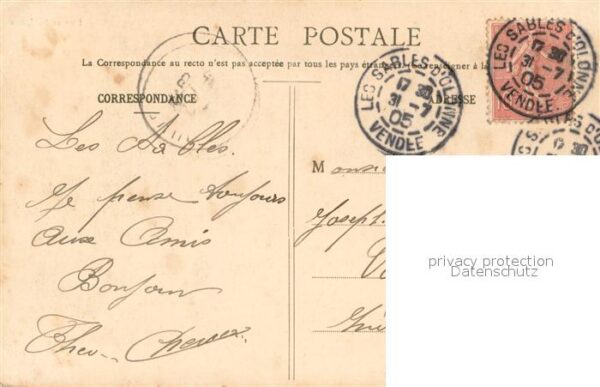 CARTE POSTALE
La Correspondance au recto n'est pas acceptée par tous les pays étrangers. (Se renseigner à la
CORRESPONDANCE
ADRESSE
LES SABLES D'OLONNE
17 30
31 - 7
05
VENDÉE
LES SABLES D'OLONNE
17 30
31 - 7
05
VENDÉE
Les Sables.
Je pense toujours
aux Amis
Bonjour
Monsieur
Joseph
privacy protection
Datenschutz